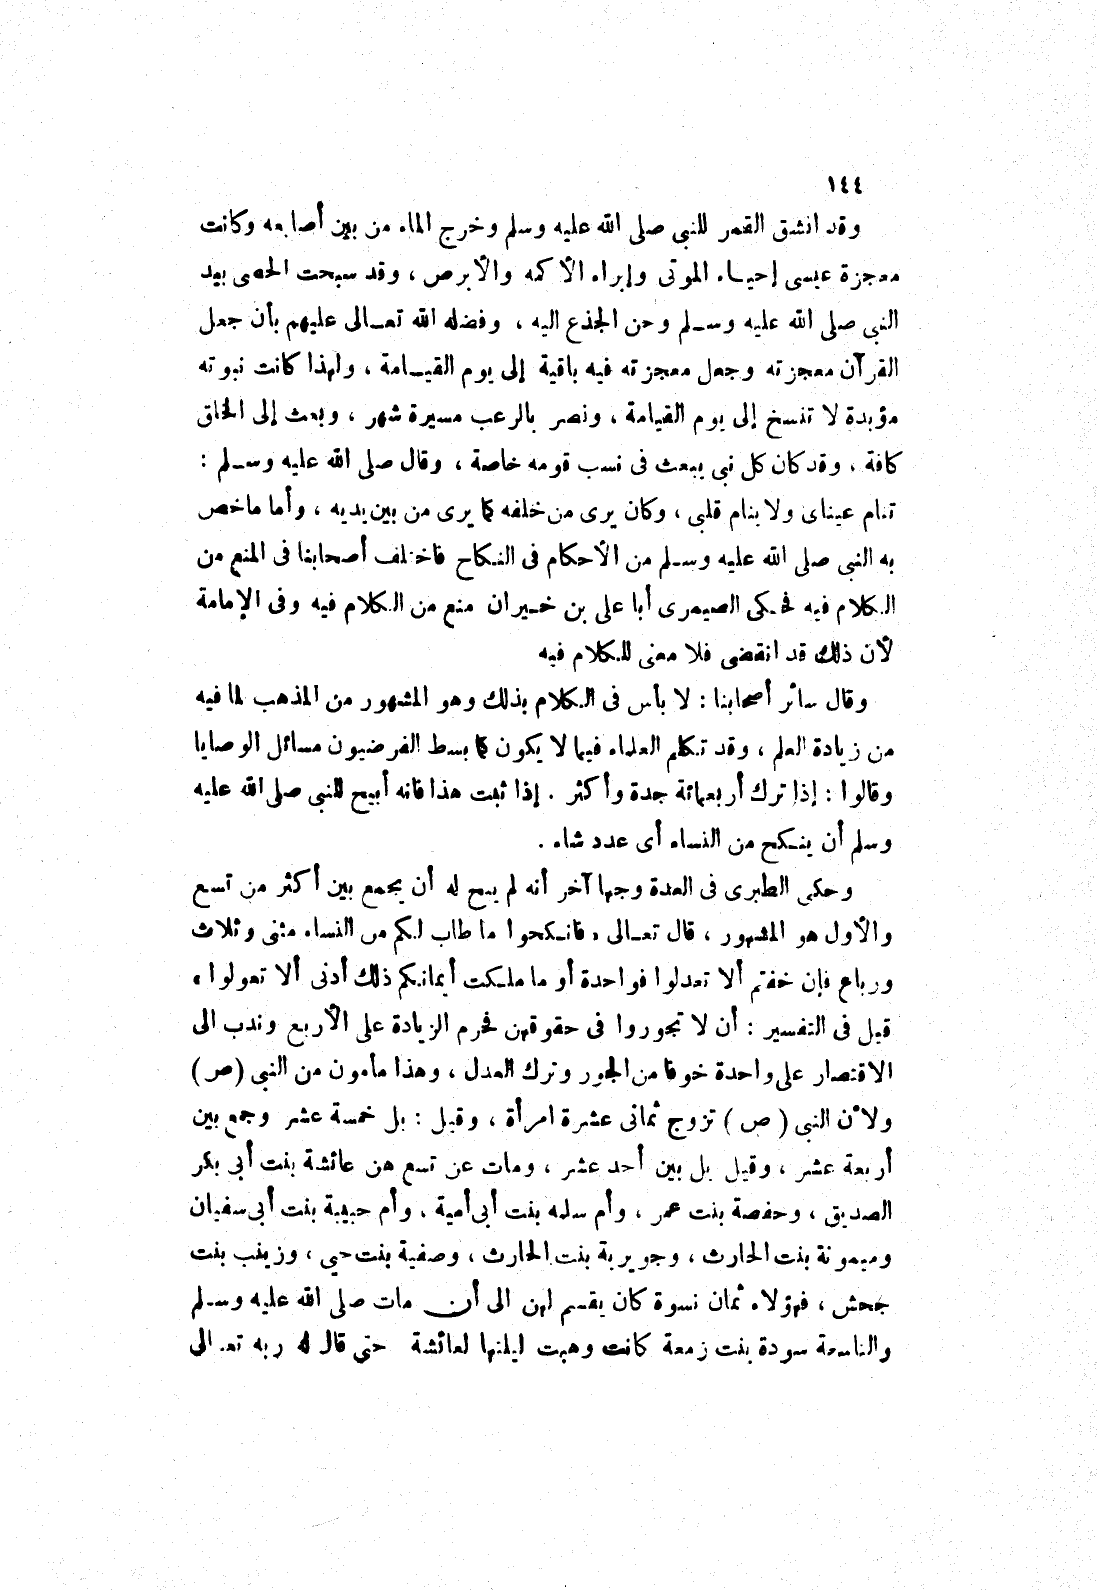 ١٤٤
وقد انشق القمر للنبى صلى الله عليه وسلم وخرج الماء من بين أصابعه وكانت
معجزة عيسى إحياء الموتى وإبراء الأكمه والأبرص ، وقد سبحت الحصى بيد
النبى صلى الله عليه وسلم وحن الجذع اليه ، وفضله الله تعالى عليهم بأن جعل
القرآن معجزته وجعل معجزته فيه باقية إلى يوم القيامة ، ولهذا كانت نبوته
مؤبدة لا تنسخ إلى يوم القيامة ، ونصر بالرعب مسيرة شهر ، وبعث إلى الخلق
كافة ، وقد كان كل نبى يبعث فى نسب قومه خاصة ، وقال صلى الله عليه وسلم :
تنام عيناى ولا ينام قلبى ، وكان يرى من خلفه كما يرى من بين يديه ، وأما ماخص
به النبى صلى الله عليه وسلم من الأحكام فى النكاح فاختلف أصحابنا فى المنع من
الكلام فيه فحكى الصيمرى أبا على بن خيران منع من الكلام فيه وفى الإمامة
لأن ذلك قد انقضى فلا معنى للكلام فيه
وقال سائر أصحابنا : لا بأس فى الكلام بذلك وهو المشهور من المذهب لما فيه
من زيادة العلم ، وقد تكلم العلماء فيما لا يكون كما بسط الفرضيون مسائل الوصايا
وقالوا : إذا ترك أربعمائة جدة وأكثر . إذا ثبت هذا فانه أبيح للنبى صلى الله عليه
وسلم أن ينكح من النساء أى عدد شاء .
وحكى الطبرى فى العدة وجها آخر أنه لم يبح له أن يجمع بين أكثر من تسع
والأول هو المشهور ، قال تعالى « فانكحوا ما طاب لكم من النساء مثنى وثلاث
ورباع فإن خفتم ألا تعدلوا فواحدة أو ما ملكت أيمانكم ذلك أدنى ألا تعولوا »
قيل فى التفسير : أن لا تجوروا فى حقوقهن فحرم الزيادة على الأربع وندب الى
الاقتصار على واحدة خوفا من الجور وترك العدل ، وهذا مأمون من النبى (ص)
ولأن النبى ( ص ) تزوج ثمانى عشرة امرأة ، وقيل : بل خمسة عشر وجمع بين
أربعة عشر ، وقيل بل بين أحد عشر ، ومات عن تسع هن عائشة بنت أبى بكر
الصديق ، وحفصة بنت عمر ، وأم سلمه بنت أبى أمية ، وأم حبيبة بنت أبى سفيان
وميمونة بنت الحارث ، وجويرية بنت الحارث ، وصفية بنت حيي ، وزينب بنت
جحش ، فهؤلاء ثمان نسوة كان يقسم لهن الى أن مات صلى الله عليه وسلم
والتاسعة سودة بنت زمعة كانت وهبت ليلتها لعائشة حتى قال له ربه تعالى